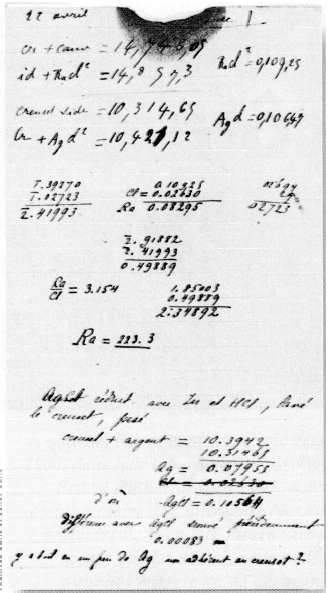 22 avril
cr + couv = 14,748,05
id + RaCl² = 14,857,3 RaCl² = 0,109,25
creuset vide = 10,314,65 AgCl = 0,10647
Cr + AgCl² = 10,421,12
1.39270 0.10925
1.02723 Cl = 0.02630 02723
2.41993 Ra 0.08295
2.91882
2.41993
0.49889
Ra/Cl = 3.154 1.85003
0.49889
2.34892
Ra = 223.3
AgCl réduit avec Zn et HCl, lavé
le creuset, pesé
creuset + argent = 10.3942
10.31465
Ag = 0.07955
Cl = 0.02630
d'où AgCl = 0.10564
différence avec AgCl trouvé précédemment
0.00083
y a t-il eu un peu de Ag non adhérent au creuset ?